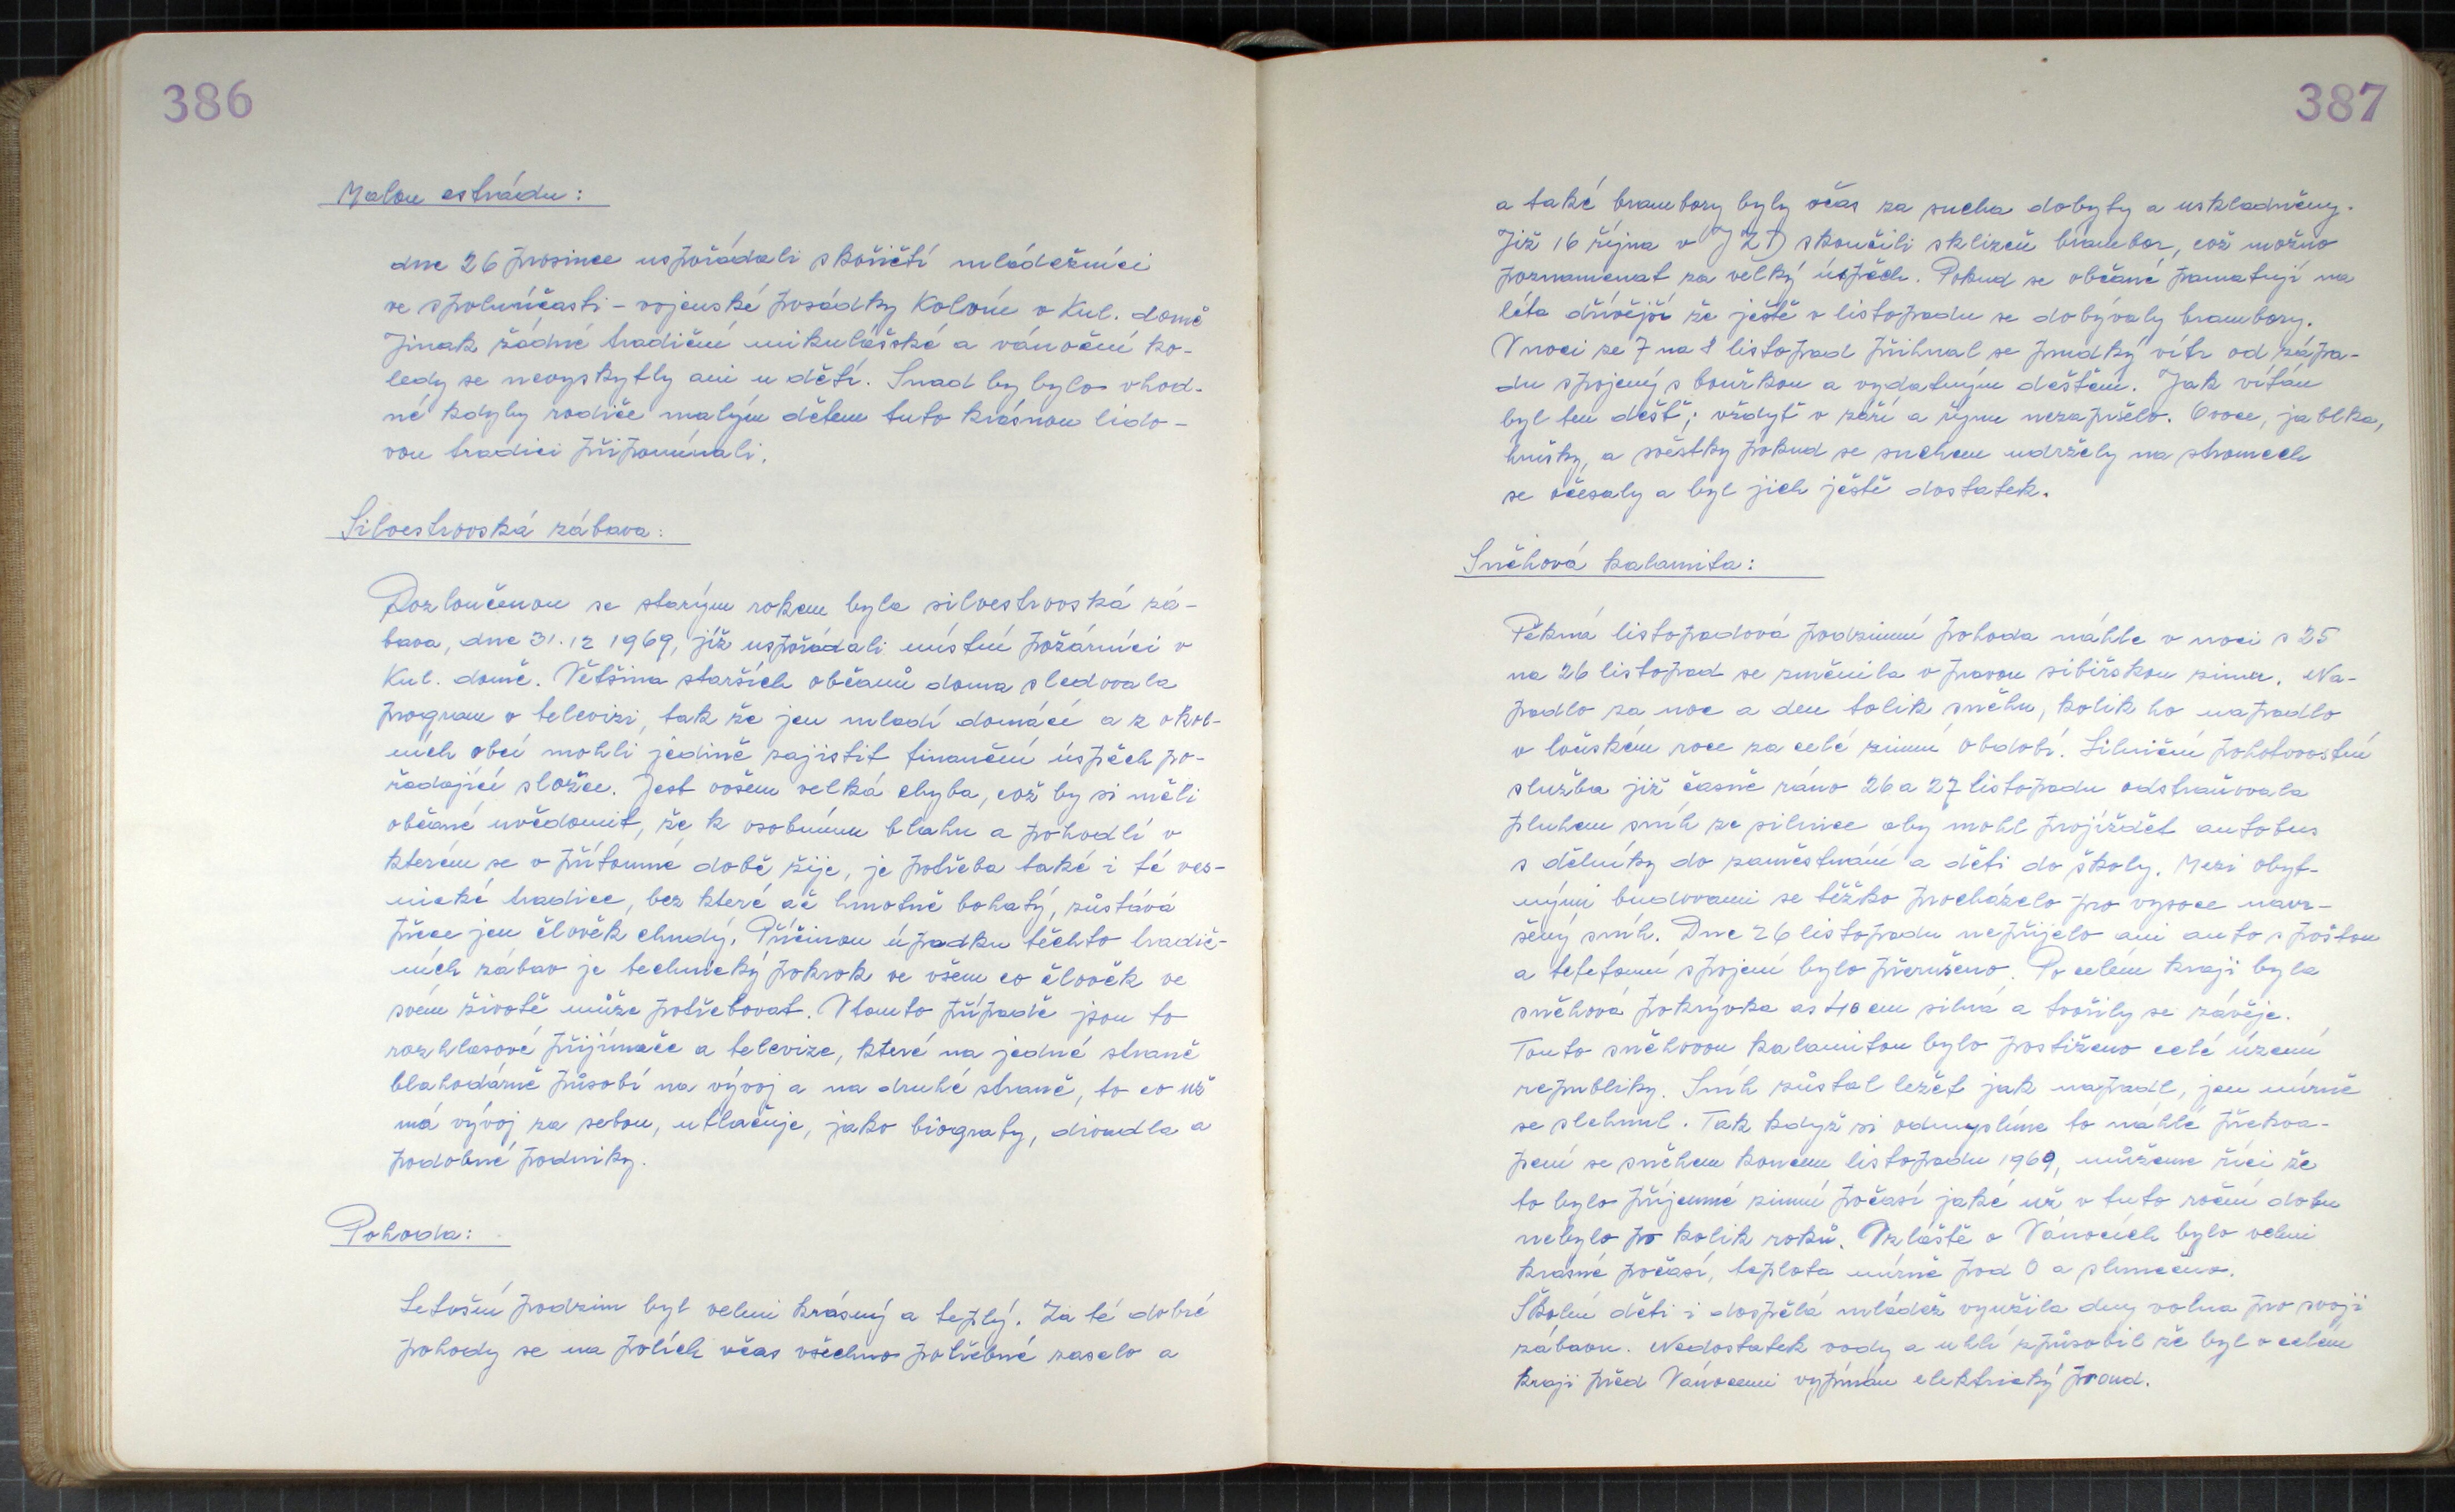 386
Malou estrádu:
dne 26 prosince uspořádali skořičtí mládežníci
ve spoluúčasti - vojenské posádky Kolín v Kul. domě
Jinak žádné tradiční mikulášské a vánoční ko-
ledy se nevyskytly ani u dětí. Snad by bylo vhod-
né kdyby rodiče malým dětem tuto krásnou lido-
vou tradici připomínali.
Silvestrovská zábava:
Rozloučenou se starým rokem byla silvestrovská zá-
bava, dne 31.12 1969, již uspořádali místní požárníci v
Kul. domě. Většina starších občanů doma sledovala
program v televizi, tak že jen mladí domácí a z okol-
ních obcí mohli jedině zajistit finanční úspěch po-
řádající složce. Jest ovšem velká chyba, což by si měli
občané uvědomit, že k osobnímu blahu a pohodlí v
kterém se v přítomné době žije, je potřeba také i té ves-
nické tradice, bez které ač hmotně bohatý, zůstává
přece jen člověk chudý. Příčinou úpadku těchto tradič-
ních zábav je technický pokrok ve všem co člověk ve
svém životě může potřebovat. V tomto případě jsou to
rozhlasové přijímače a televize, které na jedné straně
blahodárně působí na vývoj a na druhé straně, to co už
má vývoj za sebou, utlačuje, jako biografy, divadla a
podobné podniky.
Pohoda:
Letošní podzim byl velmi krásný a teplý. Za té dobré
pohody se na polích včas všechno potřebné zaselo a
387
a také brambory byly včas za sucha dobyty a uskladněny.
Již 16 října v JZD skončili sklizeň brambor, což možno
poznamenat za velký úspěch. Pokud se občané pamatují na
léta dřívější že ještě v listopadu se dobývaly brambory.
V noci ze 7 na 8 listopad přihnal se prudký vítr od zápa-
du spojený s bouřkou a vydatným deštěm. Jak vítán
byl ten déšť; vždyť v září a říjnu nezapršelo. Ovoce, jablka,
hrušky, a švestky pokud se suchem udržely na stromech
se očesaly a byl jich ještě dostatek.
Sněhová kalamita:
Pěkná listopadová podzimní pohoda náhle v noci s 25
na 26 listopad se změnila v pravou sibiřskou zimu. Na-
padlo za noc a den tolik sněhu, kolik ho napadlo
v loňském roce za celé zimní období. Silniční pohotovostní
služba již časně ráno 26 a 27 listopadu odstraňovala
pluhem sníh ze silnice aby mohl projíždět autobus
s dělníky do zaměstnání a děti do školy. Mezi obyt-
nými budovami se těžko procházelo pro vysoce navr-
šený sníh. Dne 26 listopadu nepřijelo ani auto s poštou
a telefonní spojení bylo přerušeno. Po celém kraji byla
sněhová pokrývka asi 40 cm silná a tvořily se závěje.
Touto sněhovou kalamitou bylo postiženo celé území
republiky. Sníh zůstal ležet jak napadl, jen mírně
se slehnul. Tak když si odmyslíme to náhlé překva-
pení se sněhem koncem listopadu 1969, můžeme říci že
to bylo příjemné zimní počasí jaké už v tuto roční dobu
nebylo po kolik roků. Vzláště o Vánocích bylo velmi
krásné počasí, teplota mírně pod 0 a slunečno.
Školní děti i dospělá mládež využila dny volna pro svoji
zábavu. Nedostatek vody a uhlí způsobil že byl v celém
kraji před Vánocemi vypínán elektrický proud.